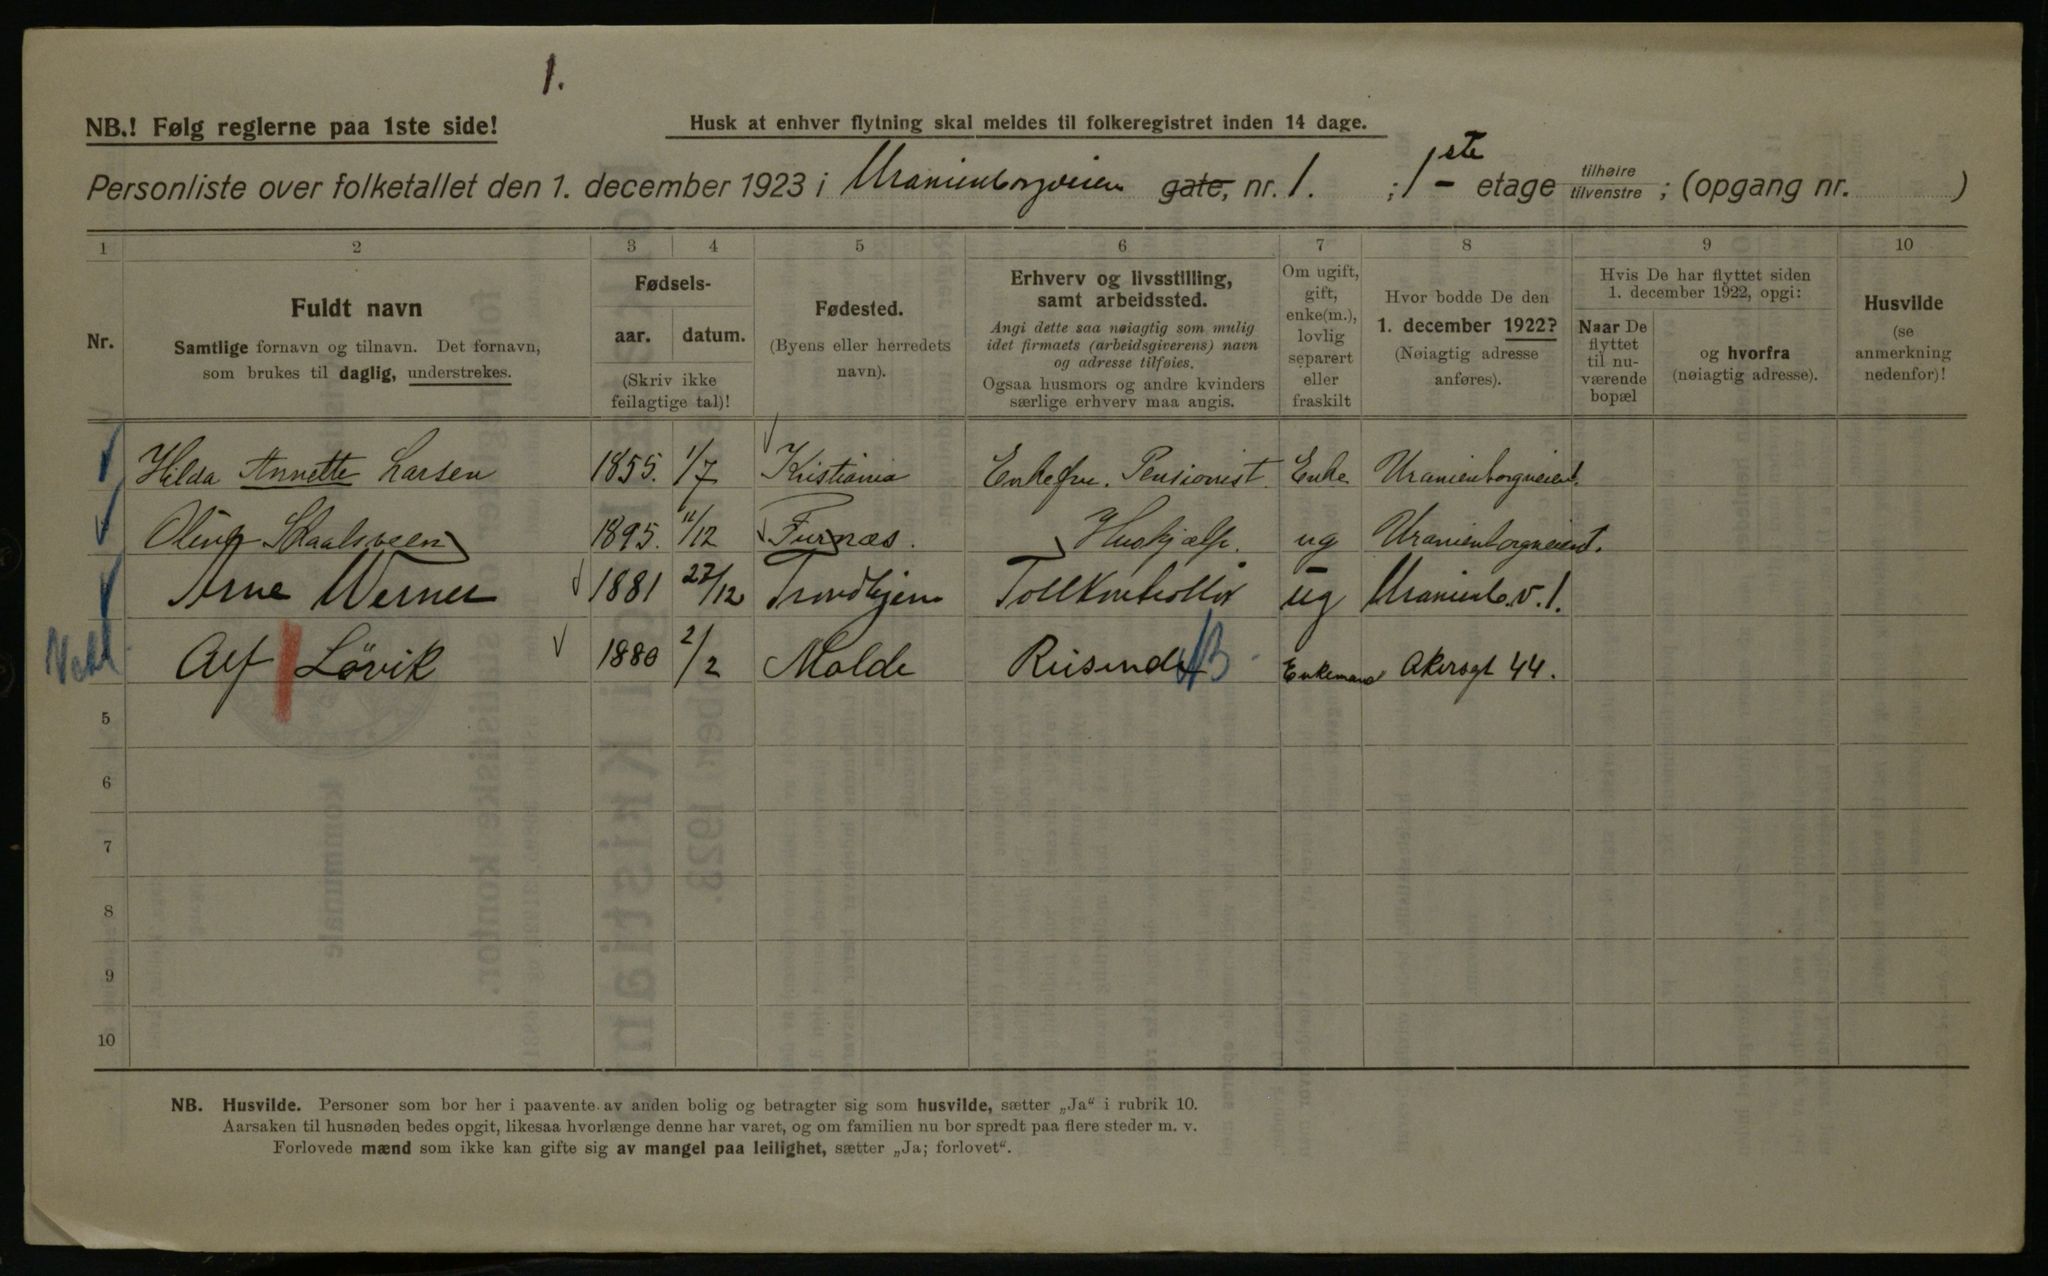 1.
NB.! Følg reglerne paa 1ste side!
Husk at enhver flytning skal meldes til folkeregistret inden 14 dage.
Personliste over folketallet den 1. december 1923 i Uranienborgveien gate, nr. 1. ; 1ste etage tilhøire tilvenstre ; (opgang nr. )
1 2 3 4 5 6 7 8 9 10
Nr.
Fuldt navn
Samtlige fornavn og tilnavn. Det fornavn,
som brukes til daglig, understrekes.
Fødsels-
aar. datum.
(Skriv ikke
feilagtige tal)!
Fødested.
(Byens eller herredets
navn).
Erhverv og livsstilling,
samt arbeidssted.
Angi dette saa nøiagtig som mulig
idet firmaets (arbeidsgiverens) navn
og adresse tilføies.
Ogsaa husmors og andre kvinders
særlige erhverv maa angis.
Om ugift,
gift,
enke(m.),
lovlig
separert
eller
fraskilt
Hvor bodde De den
1. december 1922?
(Nøiagtig adresse
anføres).
Hvis De har flyttet siden
1. december 1922, opgi:
Naar De
flyttet
til nu-
værende
bopæl
og hvorfra
(nøiagtig adresse).
Husvilde
(se
anmerkning
nedenfor)!
Hilda Annette Larsen 1855. 1/7 Kristiania Enkefru. Pensionist. Enke Uranienborgveien 1.
Olina Skaalsveen 1895. 11/12 Furnæs. Huskjælp. ug Uranienborgveien 1.
Arne Werner 1881 22/12 Trondhjem Tollkontrollør ug Uranienb.v. 1.
Alf Lövik 1880 2/2 Molde Reisende Enkemand Akersgt 44.
5
6
7
8
9
10
NB. Husvilde. Personer som bor her i paavente av anden bolig og betragter sig som husvilde, sætter „Ja“ i rubrik 10.
Aarsaken til husnøden bedes opgit, likesaa hvorlænge denne har varet, og om familien nu bor spredt paa flere steder m. v.
Forlovede mænd som ikke kan gifte sig av mangel paa leilighet, sætter „Ja; forlovet“.